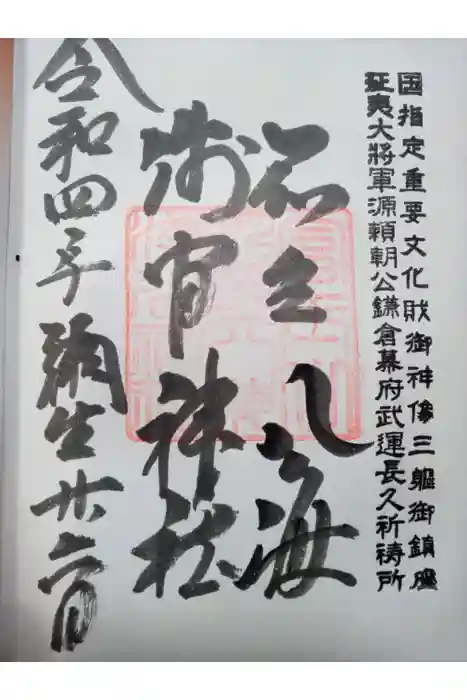 国指定重要文化財御神像三軀御鎮座
征夷大將軍源頼朝公鎌倉幕府武運長久祈祷所
忍之八海
浅間神社
令和四年彌生廿六日